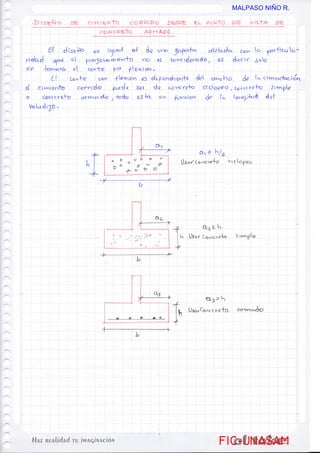 MALPASO NIÑO R.
DISEÑO DE CIMIENTO CORRIDO DESDE EL PUNTO DE VISTA DE
CONCRETO ARMADO
El diseño es igual al de una zapata aislada con la particula-
ridad que el punzonamiento no es considerado, es decir solo
se tomara el corte por flexion.
El corte por flexion es dependiente del ancho de la cimentación
el cimiento corrido puede ser de concreto ciclopeo, concreto simple
o concreto armado, todo esto en funcion de la longitud del
Voladizo.
a1
a1 ≤ h/2
h
Usar concreto ciclopeo
b
a2
a2 ≤ h
h Usar concreto simple
b
a3
a3 > h
h Usar Concreto armado
b
Haz realidad tu imaginación
FIC-UNASAM